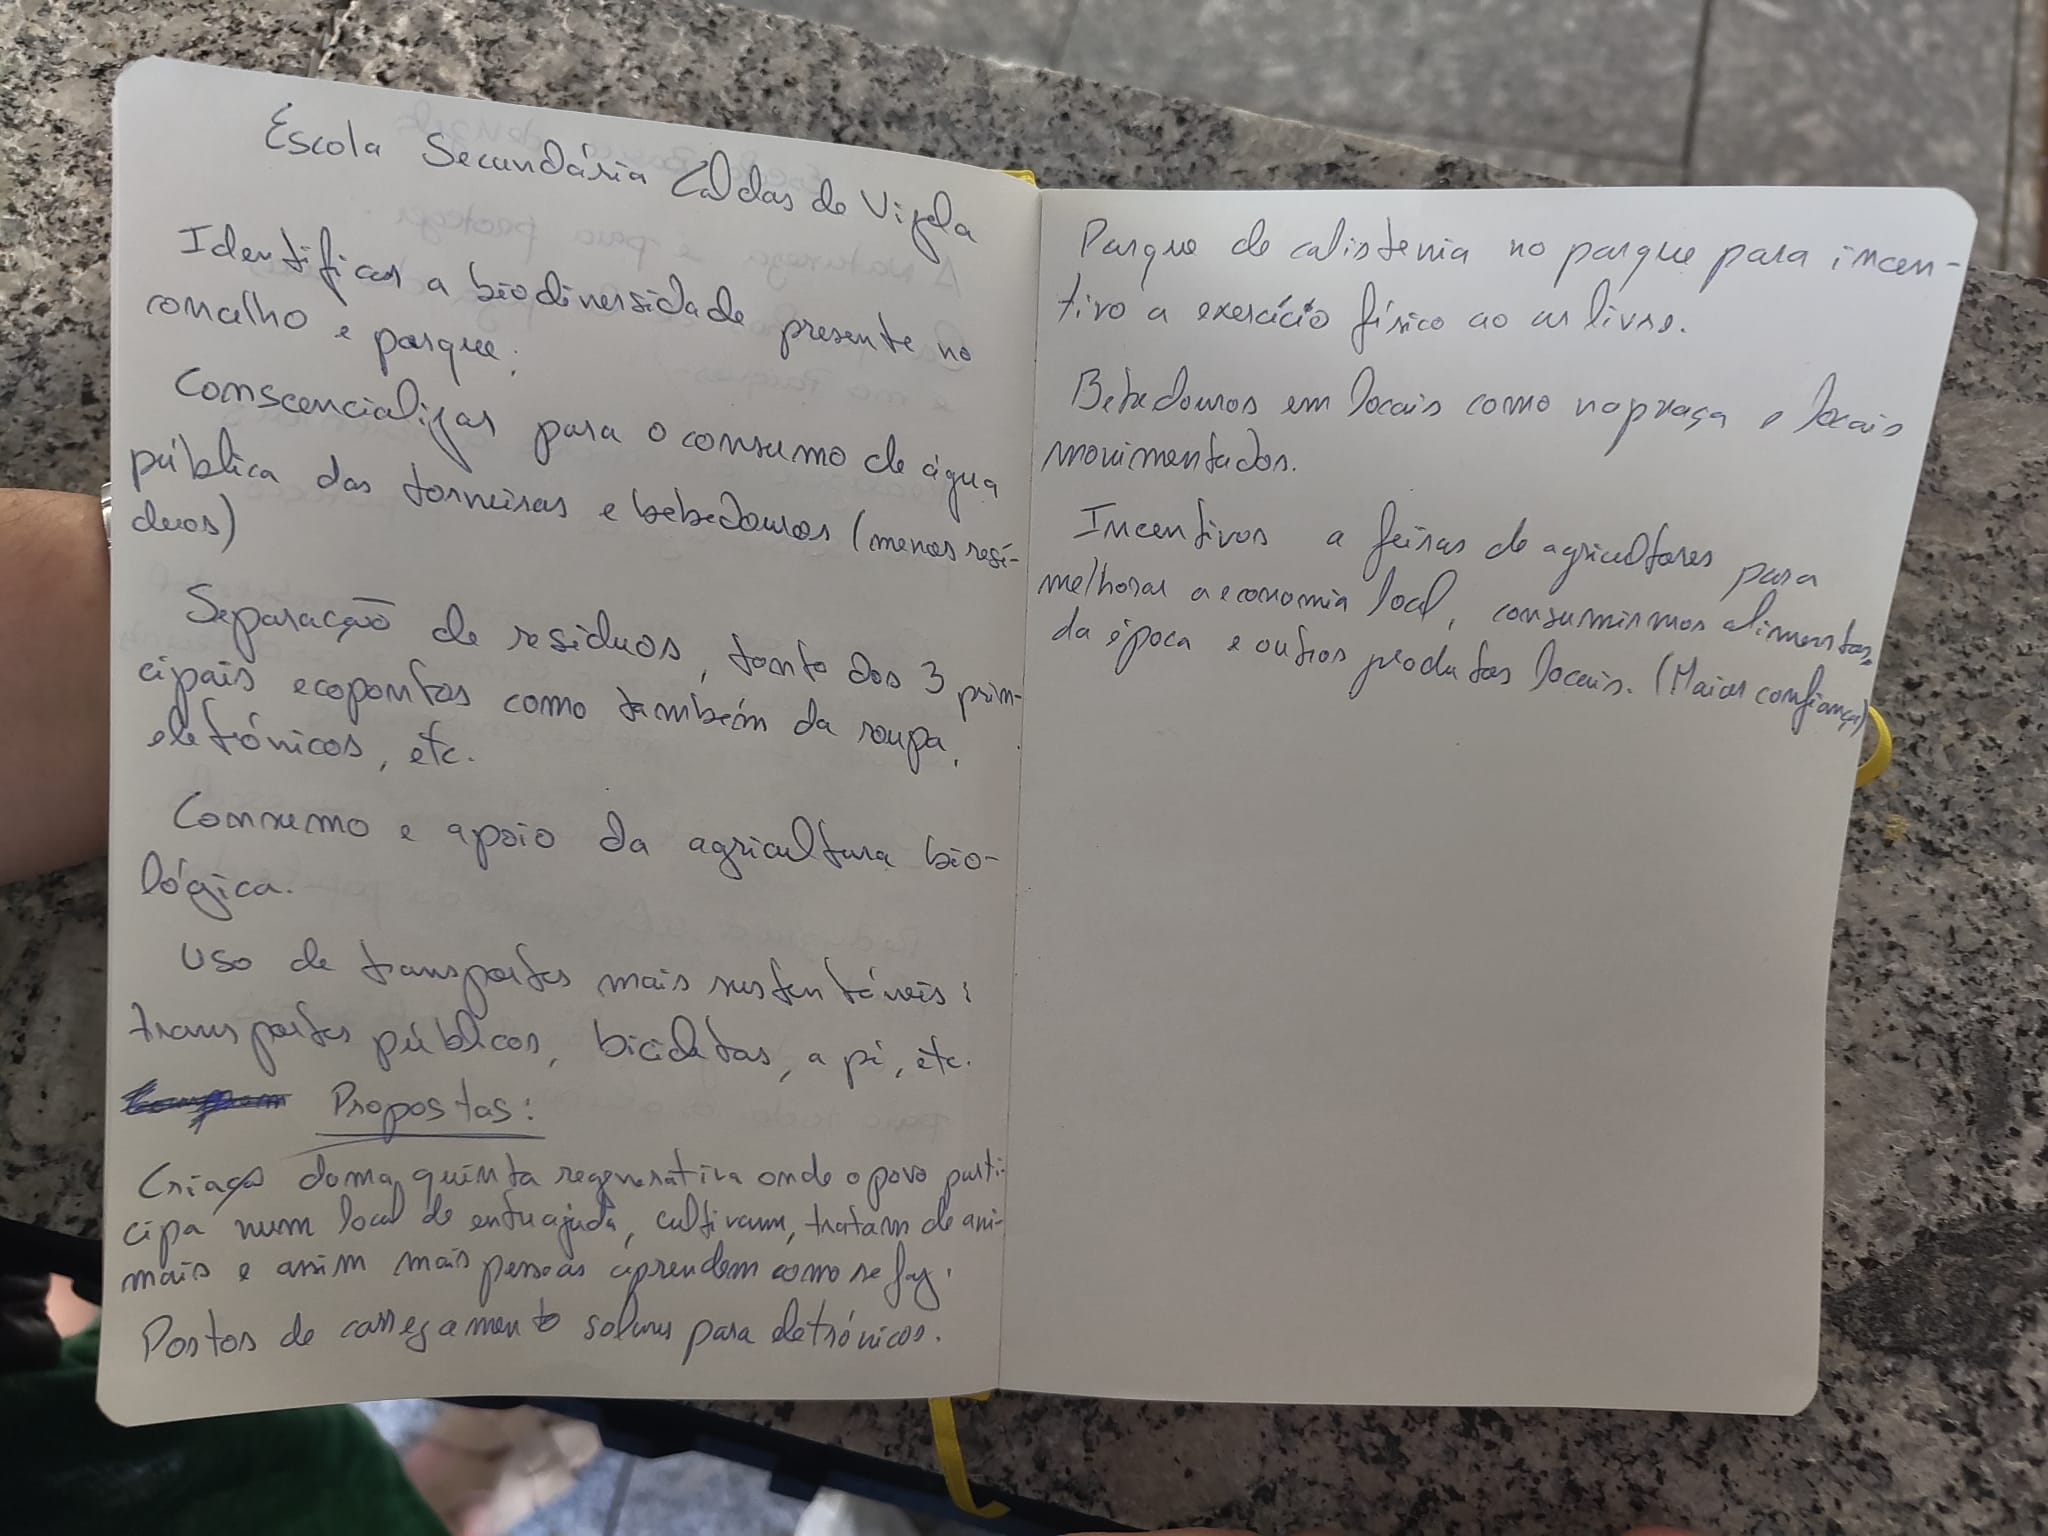 Escola Secundária Caldas de Vizela
Identificar a biodiversidade presente no
concelho e parque;
Conscencializar para o consumo de água
pública das torneiras e bebedouros (menos resí-
duos)
Separação de resíduos, tanto dos 3 prin-
cipais ecopontos como também da roupa,
eletrónicos, etc.
Consumo e apoio da agricultura bio-
lógica.
Uso de transportes mais sustentáveis:
transportes públicos, bicicletas, a pé, etc.
Propostas:
Criação duma quinta regenerativa onde o povo parti-
cipa num local de entreajuda, cultivam, tratam de ani-
mais e assim mais pessoas aprendem como se faz.
Postos de carregamento solares para eletrónicos.
Parque de calistenia no parque para incen-
tivo a exercício físico ao ar livre.
Bebedouros em locais como na praça e locais
movimentados.
Incentivos a feiras de agricultores para
melhorar a economia local, consumirmos alimentos
da época e outros produtos locais. (Maior confiança)